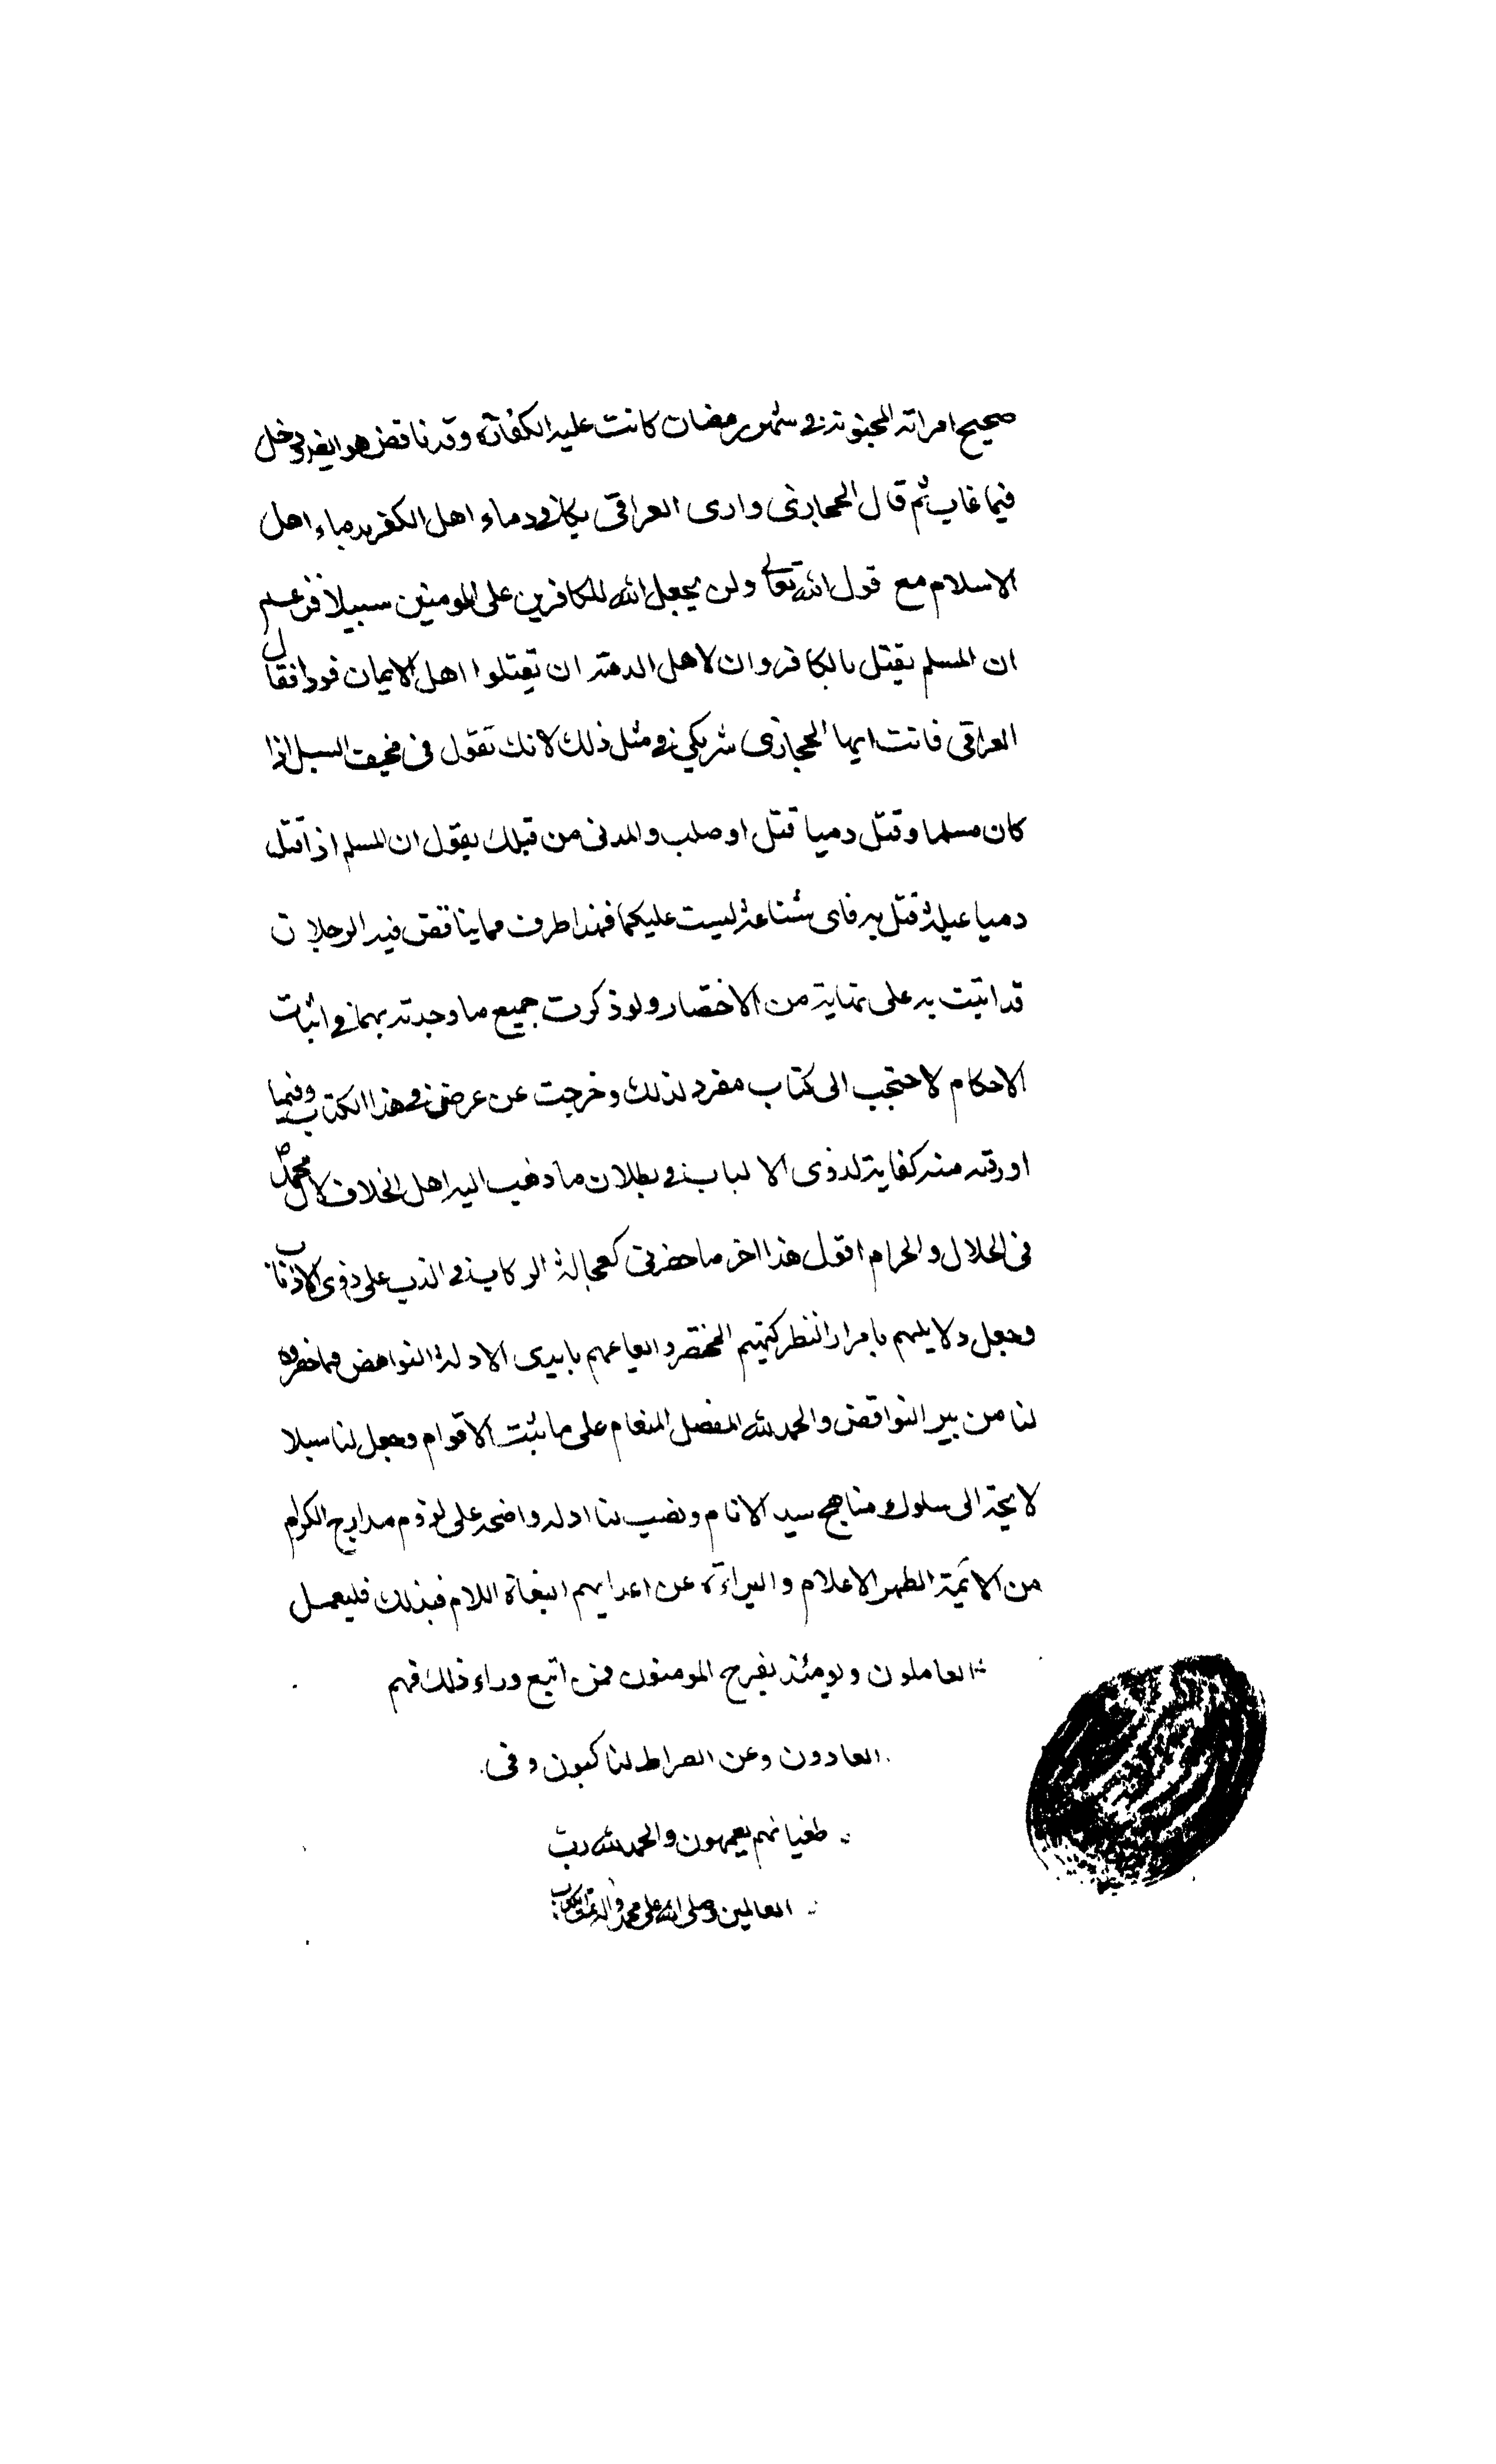 صحيح امراته المجنونة في شهر رمضان كانت عليه الكفارة وقد ناقض هو ايضا ودخل
فيما غاب ثم قال الحجازى وارى العراقى يكافى دماء اهل الكفر بدماء اهل
الاسلام مع قول الله تعالى ولن يجعل الله للكافرين على المومنين سبيلا فزعم
ان المسلم يقتل بالكافر وان لاهل الدمه ان تقتلوا اهل الايمان فقال
العراقى فانت ايها الحجازى شريكي في مثل ذلك لانك تقول فى مخيف السبل اذا
كان مسلما وقتل دميا قتل او صلب والمدنى من قبلك يقول ان المسلم اذا قتل
دميا عيلة قتل به فاى شناعة ليست عليكما فهذا طرف مما يناقض فيه الرجلان
قد اتيت به على نهاية من الاختصار ولو ذكرت جميع ما وجدته بهما في اثبات
الاحكام لاحتجب الى كتاب مفرد لذلك وخرجت عن عرضى في هذا الكتاب وفيما
اوردته منه كفاية لذوى الالباب في بطلان ما ذهب اليه اهل الخلاف لال محمد ص
فى الحلال والحرام اقول هذا اخر ما حضرنى كعجالة الركاب في الذب على ذوى الاذناب
وجعل دلايلهم بامرار النظر كهيثم المحتضر والعاعهم بايدى الادلة النواهض
لنا من بير النواقض والحمد لله المفضل المنعام على ما ثبت الاقوام وجعل لنا سبلا
لايحة الى سلوك مناهج سيد الانام ونصب لنا ادله واضحه على لزوم مدارج الكرام
من الائمة الطهر الاعلام والبراءة عن اعدايهم البغاة اللام فبذلك فليعمل
العاملون ويومئذ يفرح المومنون فمن اتبع وراء ذلك فهم
العادون وعن الصراط لناكبون وفى
طغيانهم يعمهون والحمد لله رب
العالمين وصلى الله على محمد واله تمت الكتاب